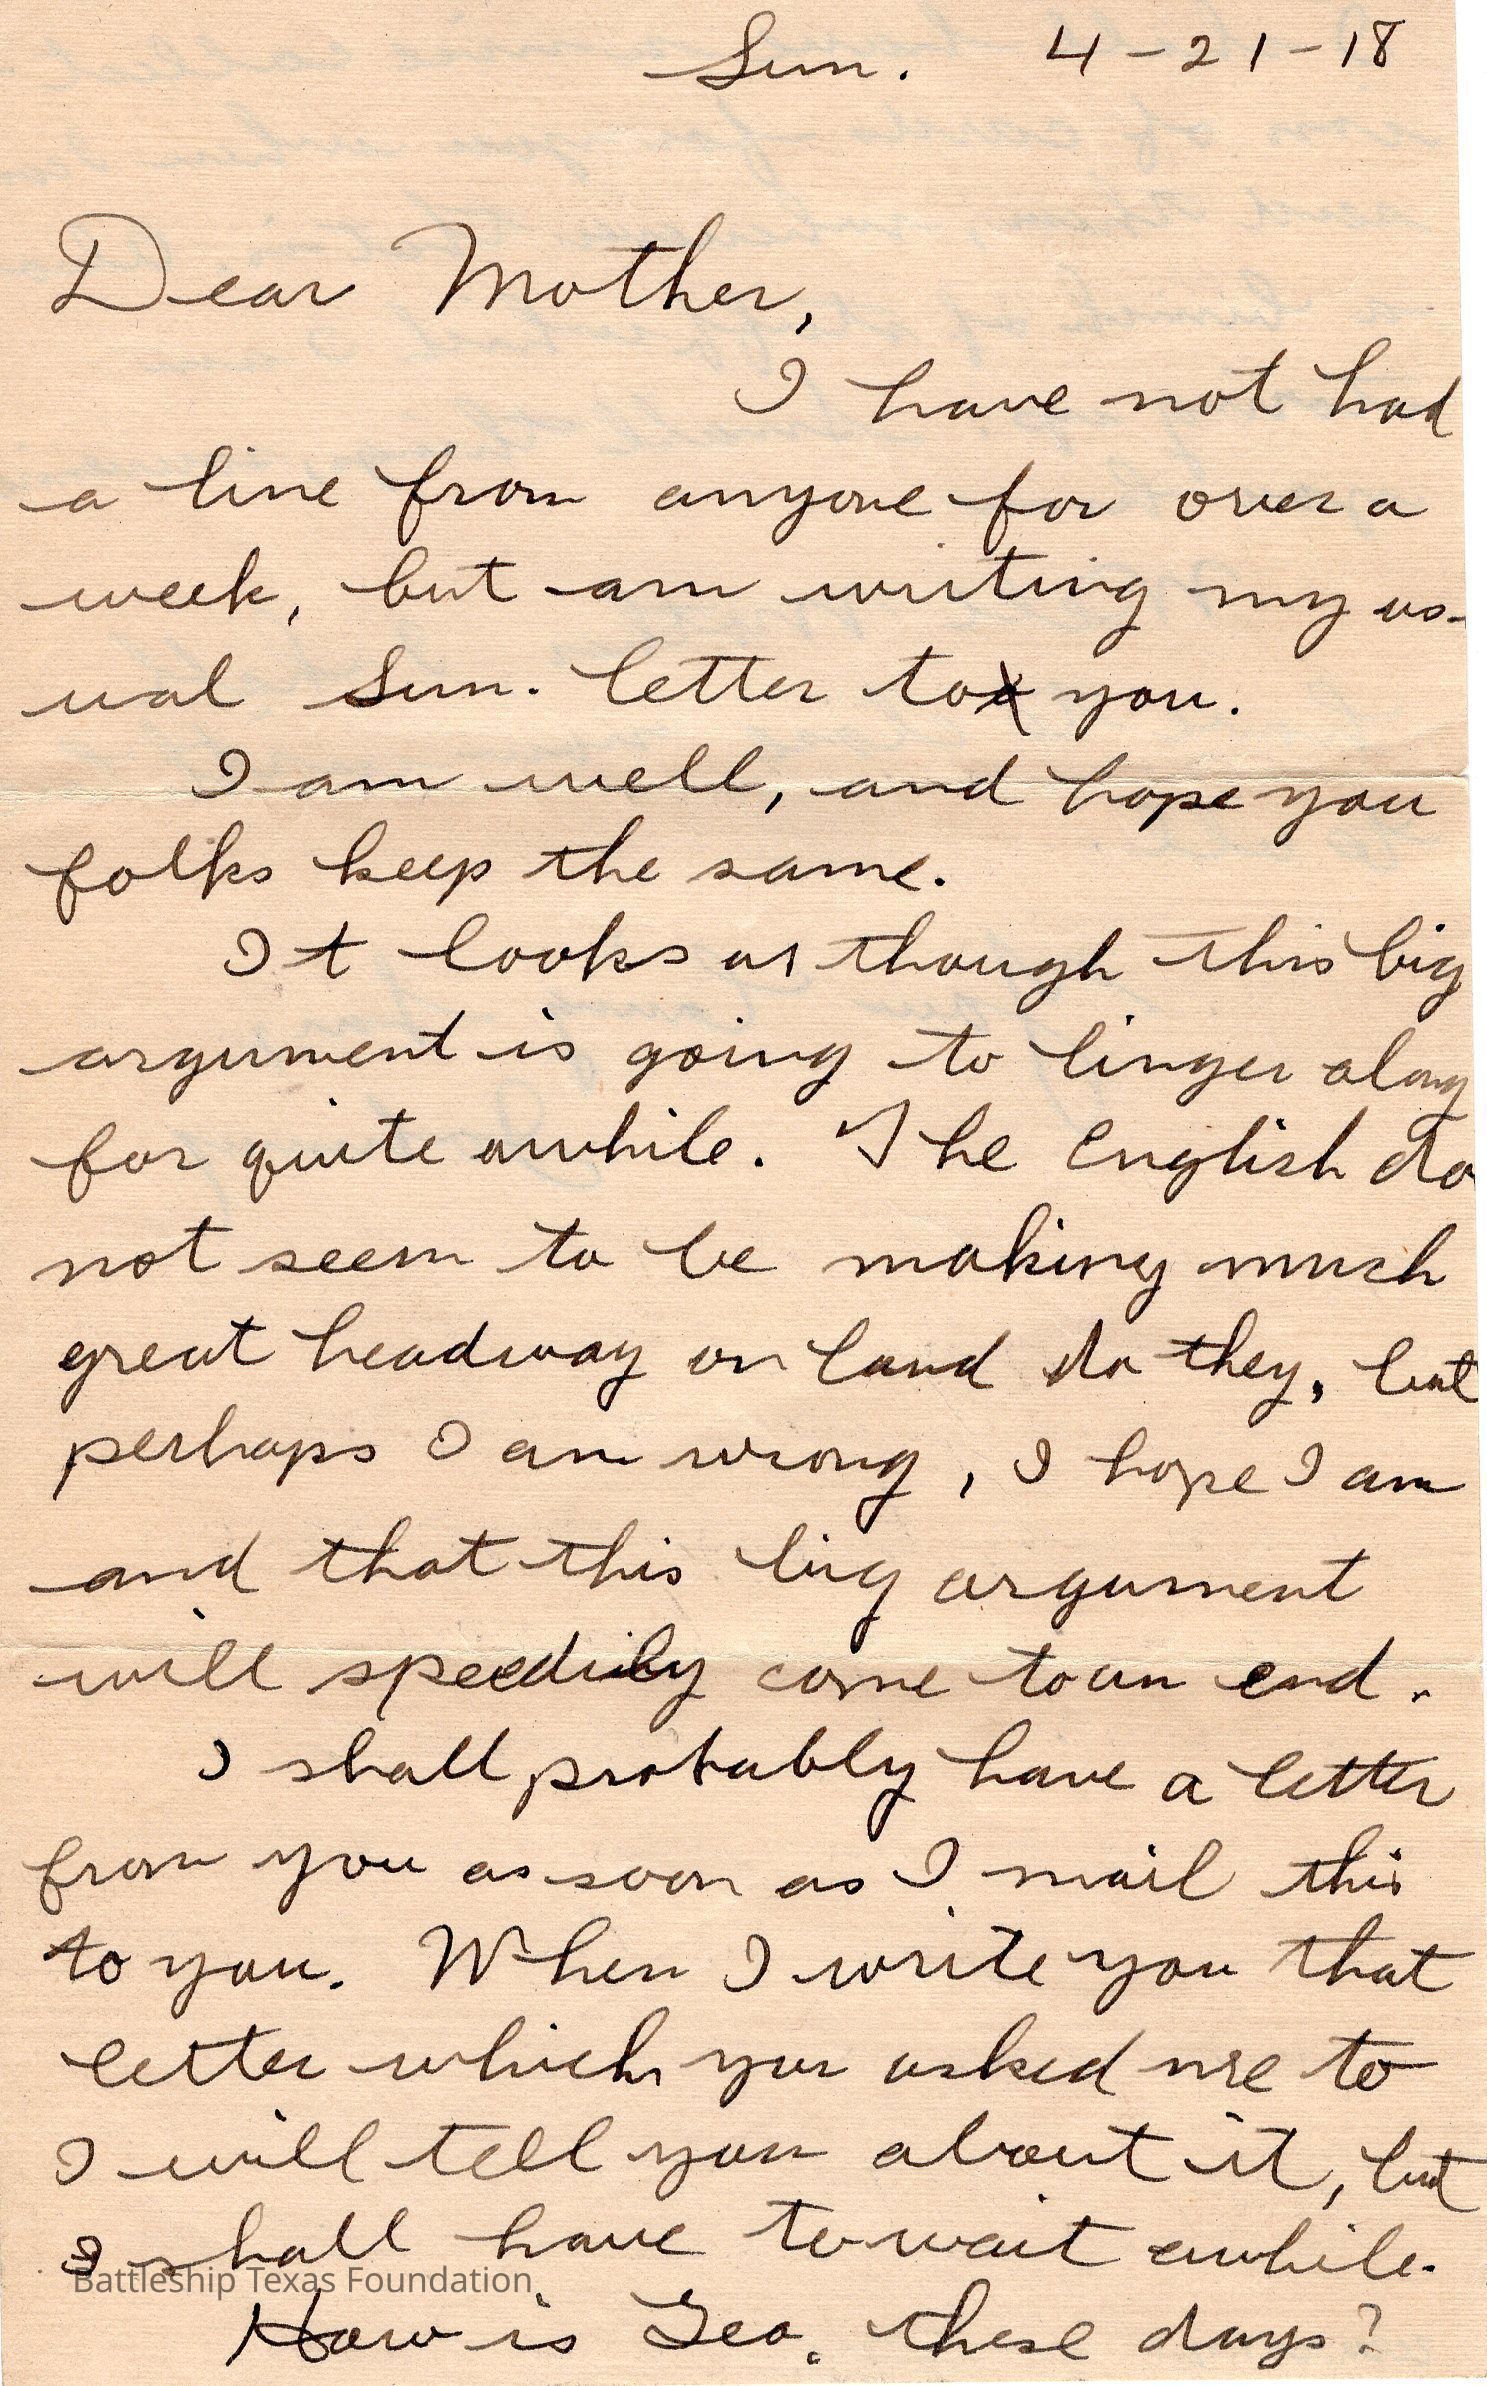 Sun. 4-21-18
Dear Mother,
I have not had
a line from anyone for over a
week, but am writing my us-
ual Sun. letter to you.
I am well, and hope you
folks keep the same.
It looks as though this big
argument is going to linger along
for quite awhile. The English do
not seem to be making much
great headway on land do they, but
perhaps I am wrong, I hope I am
and that this big argument
will speedily come to an end.
I shall probably have a letter
from you as soon as I mail this
to you. When I write you that
letter which you asked me to
I will tell you about it, but
I shall have to wait awhile.
Battleship Texas Foundation
How is Geo. these days?